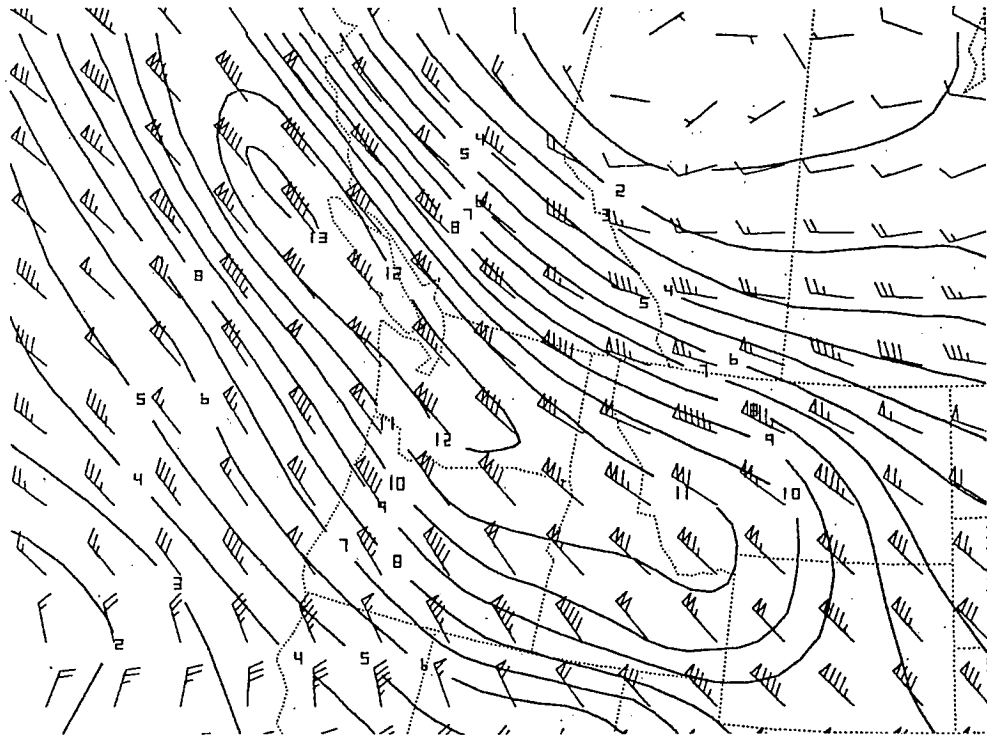 4
5
2
6
7
3
8
13
12
8
4
5
6
7
5
6
11
9
12
4
10
11
10
9
7
8
3
2
4
5
6